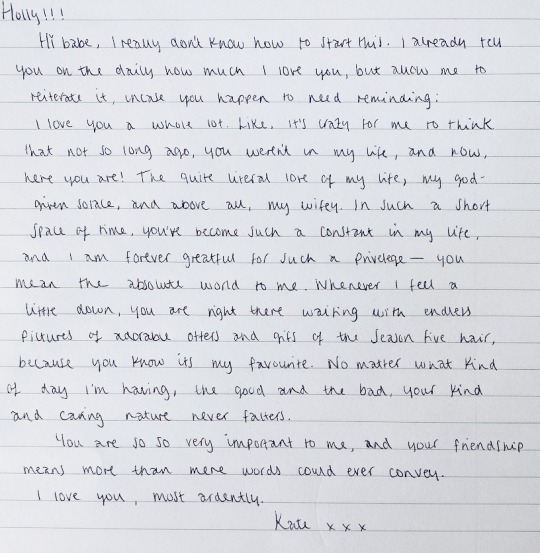 Holly!!!
Hi babe, I really don't know how to start this. I already tell
you on the daily how much I love you, but allow me to
reiterate it, incase you happen to need reminding:
I love you a whole lot. Like, it's crazy for me to think
that not so long ago, you weren't in my life, and now,
here you are! The quite literal love of my life, my god-
given solace, and above all, my wifey. In such a short
space of time, you've become such a constant in my life,
and I am forever greatful for such a privelege — you
mean the absolute world to me. Whenever I feel a
little down, you are right there waiting with endless
pictures of adorable otters and gifs of the season five hair,
because you know its my favourite. No matter what kind
of day I'm having, the good and the bad, your kind
and caring nature never falters.
You are so so very important to me, and your friendship
means more than mere words could ever convey.
I love you, most ardently.
Kate x x x